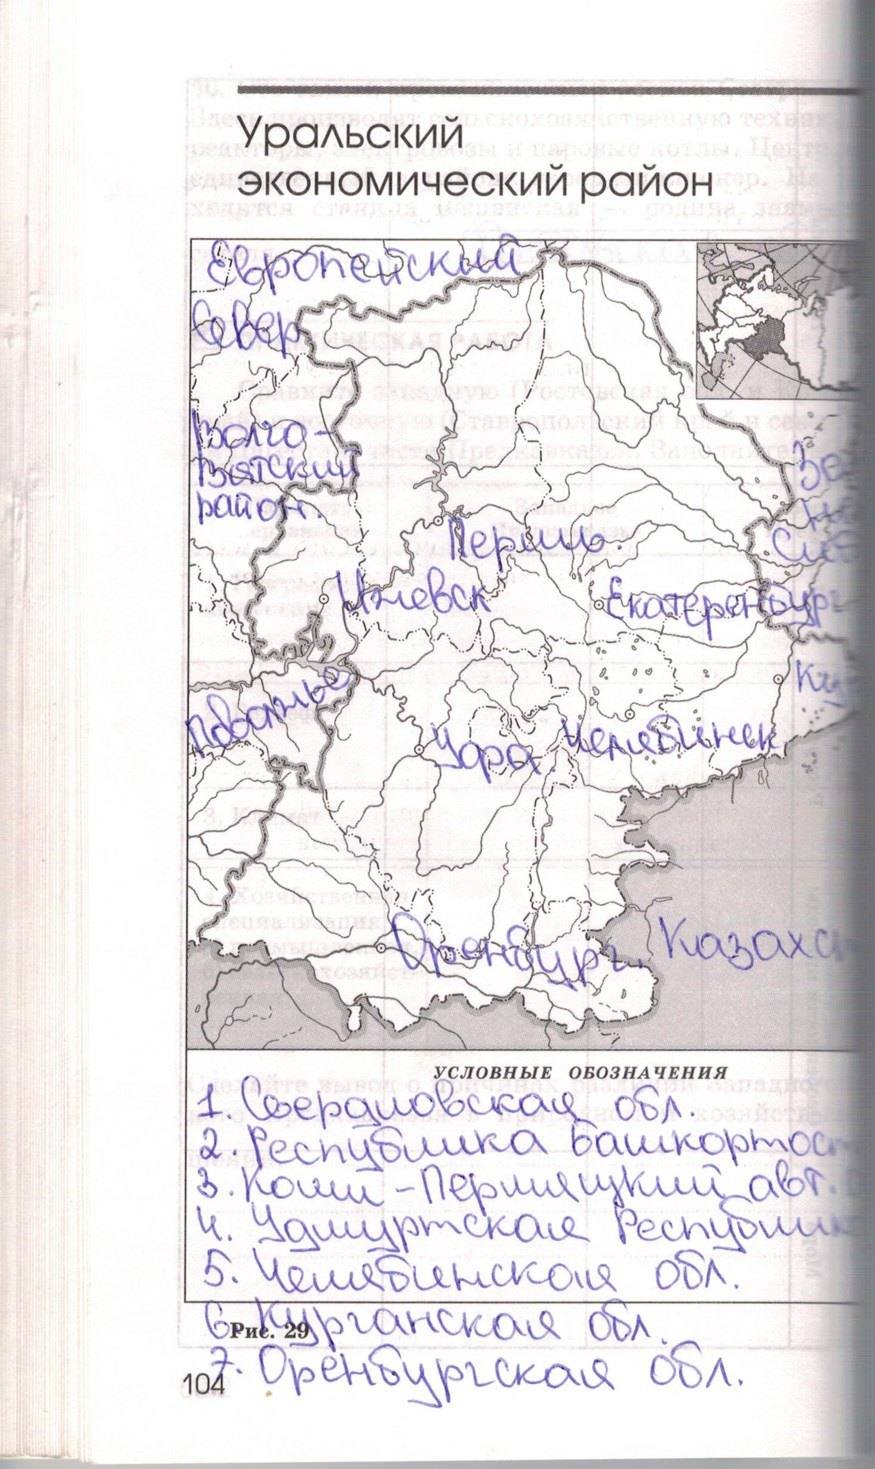 Уральский
экономический район
Европейский
Север
Волго-
Вятский
район
Пермь
Ижевск
Екатеренбург
Поволжье
Уфа
Челябинск
Оренбург.
УСЛОВНЫЕ ОБОЗНАЧЕНИЯ
1. Свердловская обл.
2. Республика Башкортост
3. Коми-Пермяцкий авт.
4. Удмуртская Республик
5. Челябинская обл.
6. Курганская обл.
Рис. 29
7. Оренбургская обл.
104